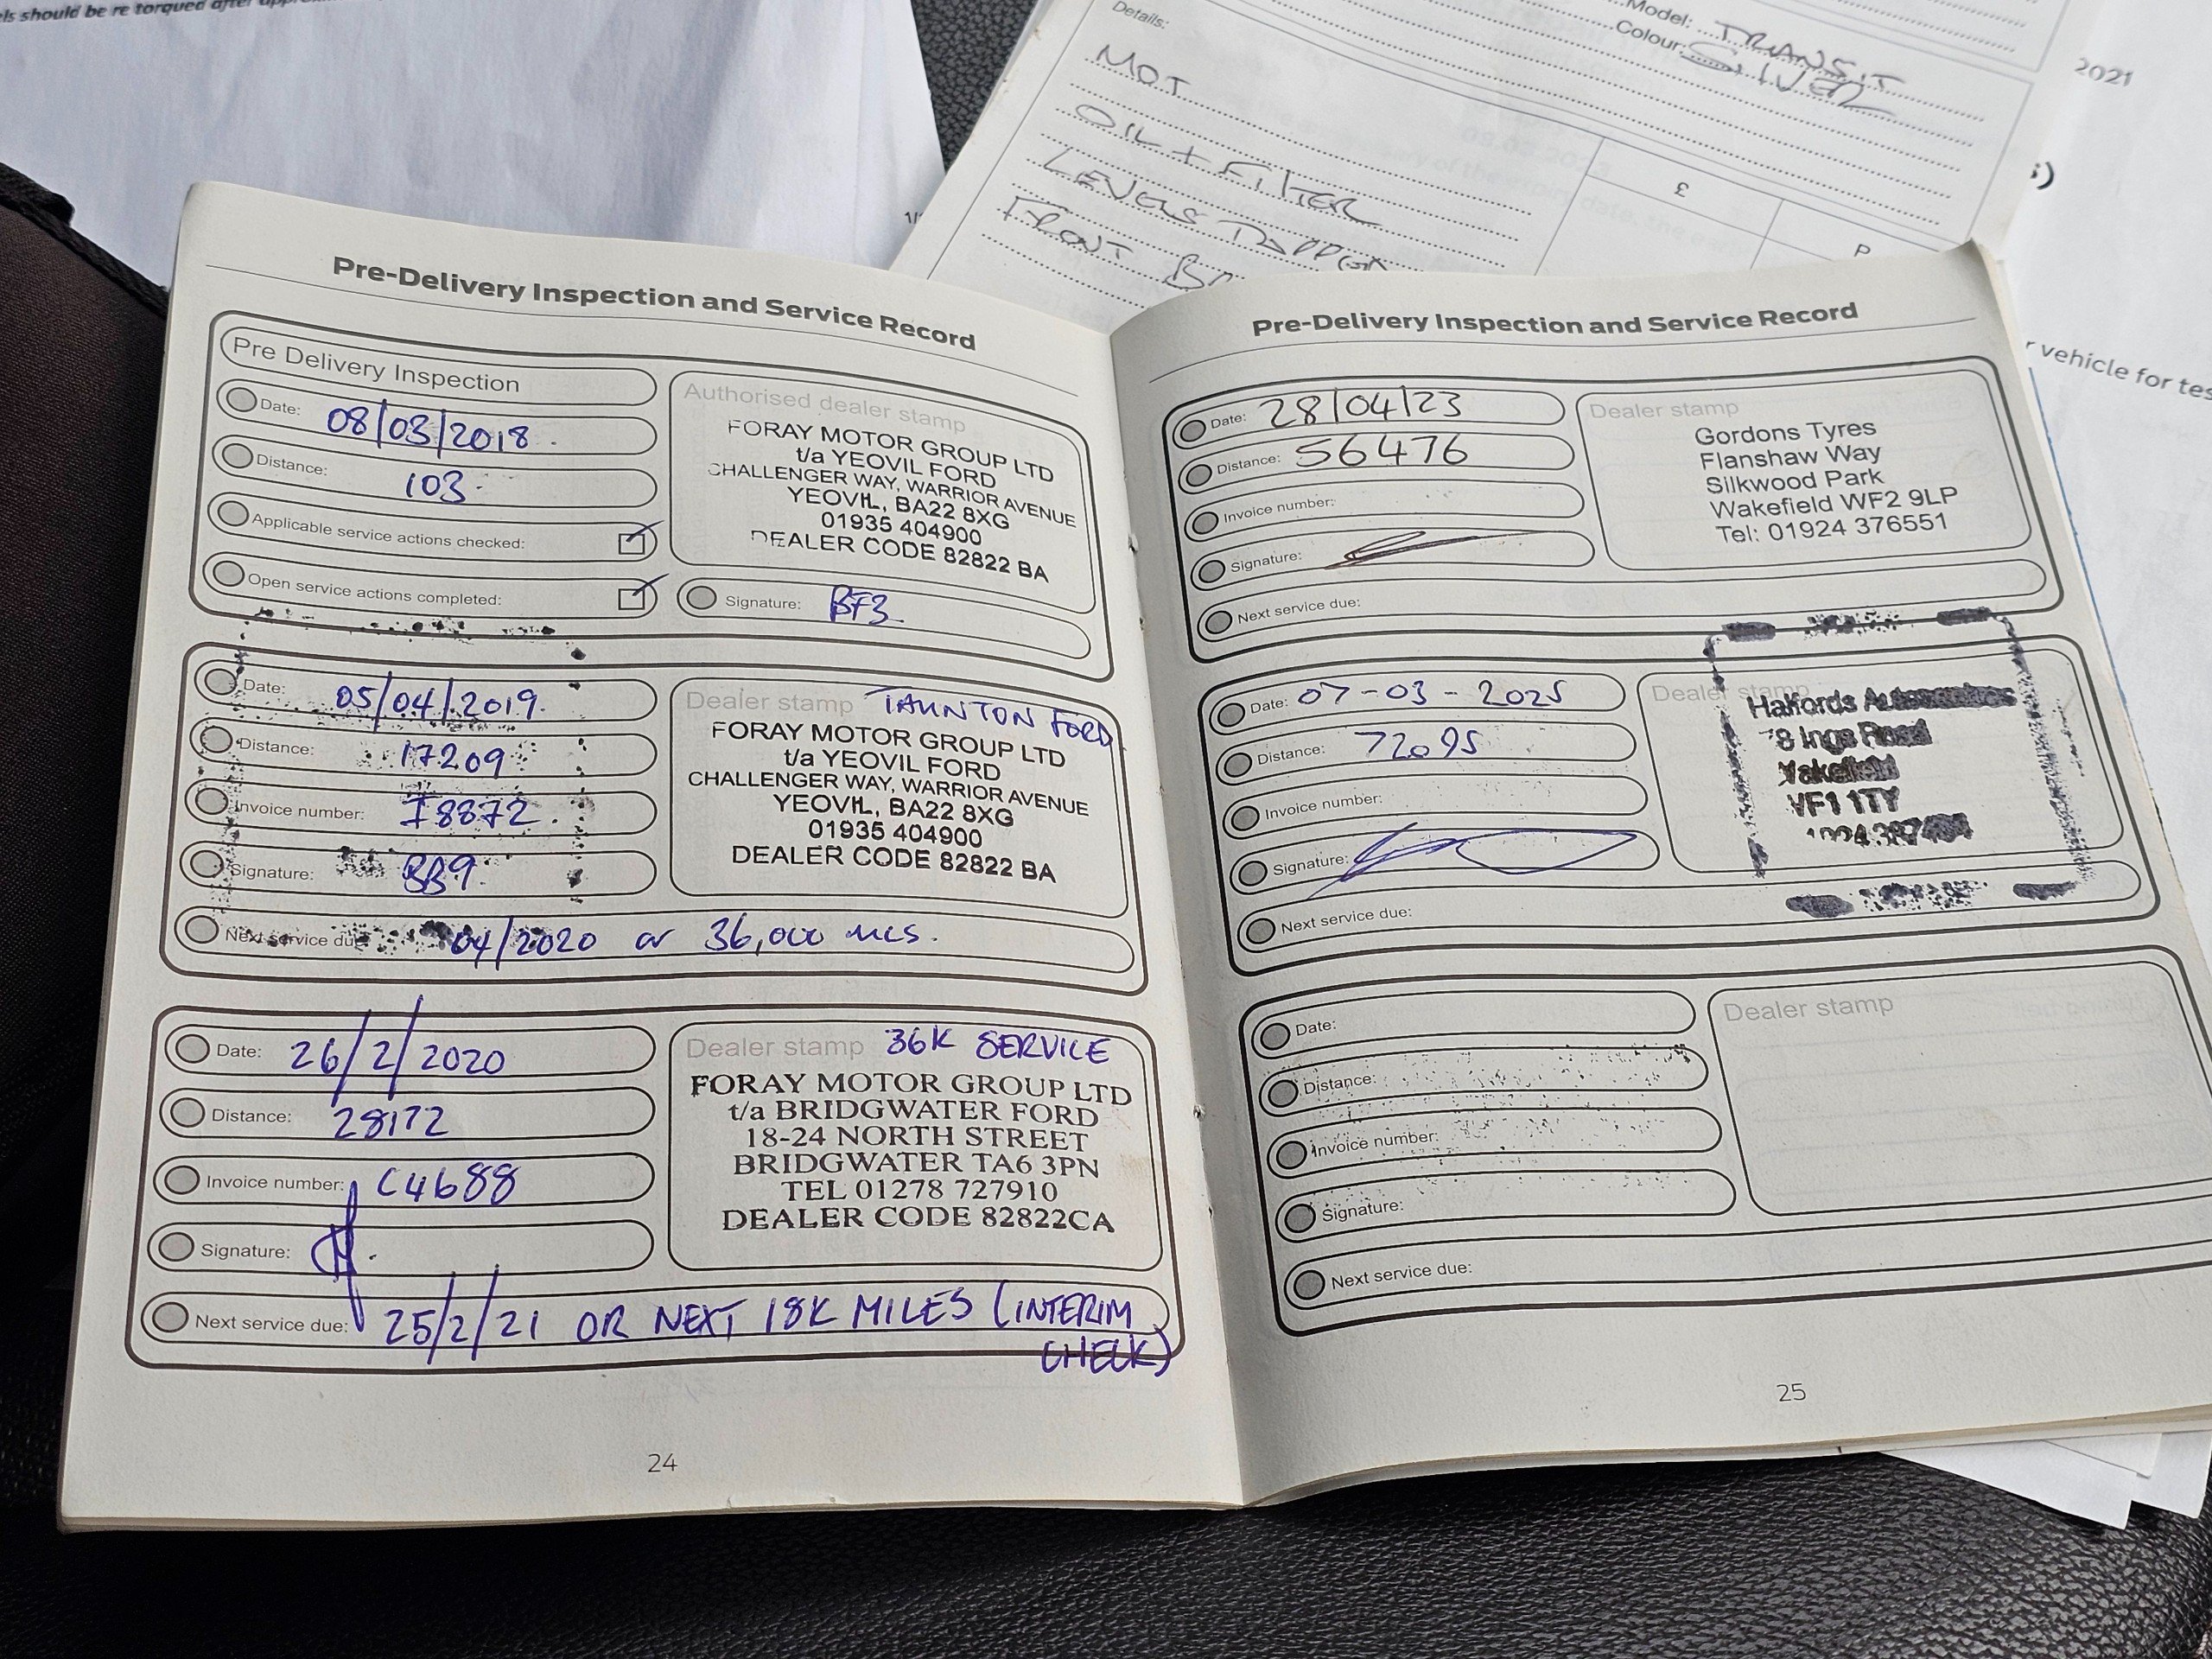 els should be re torqued after
1/
Model: TRANSIT
Colour: SILVER
2021
Details:
MOT
OIL + FILTER
LEVELS TOPPED
FRONT
£
P
r vehicle for tes
Pre-Delivery Inspection and Service Record
Pre Delivery Inspection
Date: 08/03/2018.
Distance: 103
Applicable service actions checked:
Open service actions completed:
Authorised dealer stamp
FORAY MOTOR GROUP LTD
t/a YEOVIL FORD
CHALLENGER WAY, WARRIOR AVENUE
YEOVIL, BA22 8XG
01935 404900
DEALER CODE 82822 BA
Signature: BF3
Date: 05/04/2019.
Distance: 17209
Invoice number: I8872.
Signature: BB9
Dealer stamp TAUNTON FORD
FORAY MOTOR GROUP LTD
t/a YEOVIL FORD
CHALLENGER WAY, WARRIOR AVENUE
YEOVIL, BA22 8XG
01935 404900
DEALER CODE 82822 BA
Next service due 04/2020 or 36,000 mls.
Date: 26/2/2020
Distance: 28172
Invoice number: C4688
Signature:
Dealer stamp 36K SERVICE
FORAY MOTOR GROUP LTD
t/a BRIDGWATER FORD
18-24 NORTH STREET
BRIDGWATER TA6 3PN
TEL 01278 727910
DEALER CODE 82822CA
Next service due: 25/2/21 OR NEXT 18K MILES (INTERIM
CHECK)
24
Pre-Delivery Inspection and Service Record
Date: 28/04/23
Distance: 56476
Invoice number:
Signature:
Dealer stamp
Gordons Tyres
Flanshaw Way
Silkwood Park
Wakefield WF2 9LP
Tel: 01924 376551
Next service due:
Date: 07-03-2025
Distance: 72095
Invoice number:
Signature:
Dealer stamp
Halfords Autocentres
78 Ings Road
Wakefield
WF1 1TY
Next service due:
Date:
Distance:
Invoice number:
Signature:
Dealer stamp
Next service due:
25